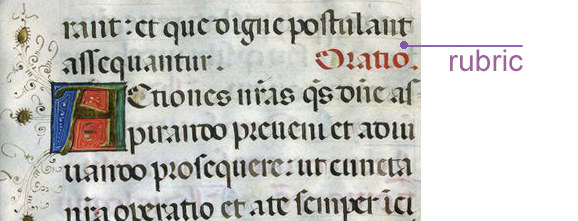 rant: et que digne postulant
assequantur. Oratio.
rubric
ACtiones nr̄as q̄s dn̄e as
pirando preueni et adiu
uando prosequere: ut cuncta
nr̄a operatio et a te semper ici